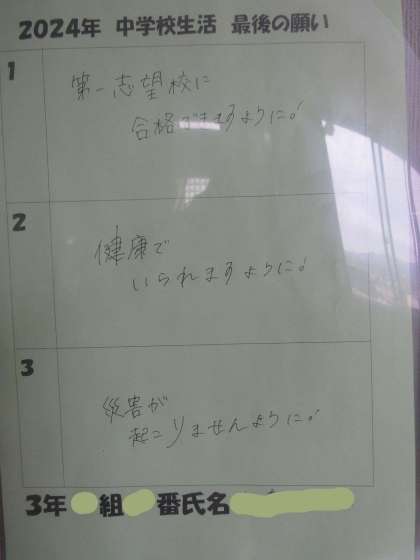 2024年 中学校生活 最後の願い
1
第一志望校に
合格できますように!
2
健康で
いられますように!
3
災害が
起こりませんように!
3年 組 番氏名